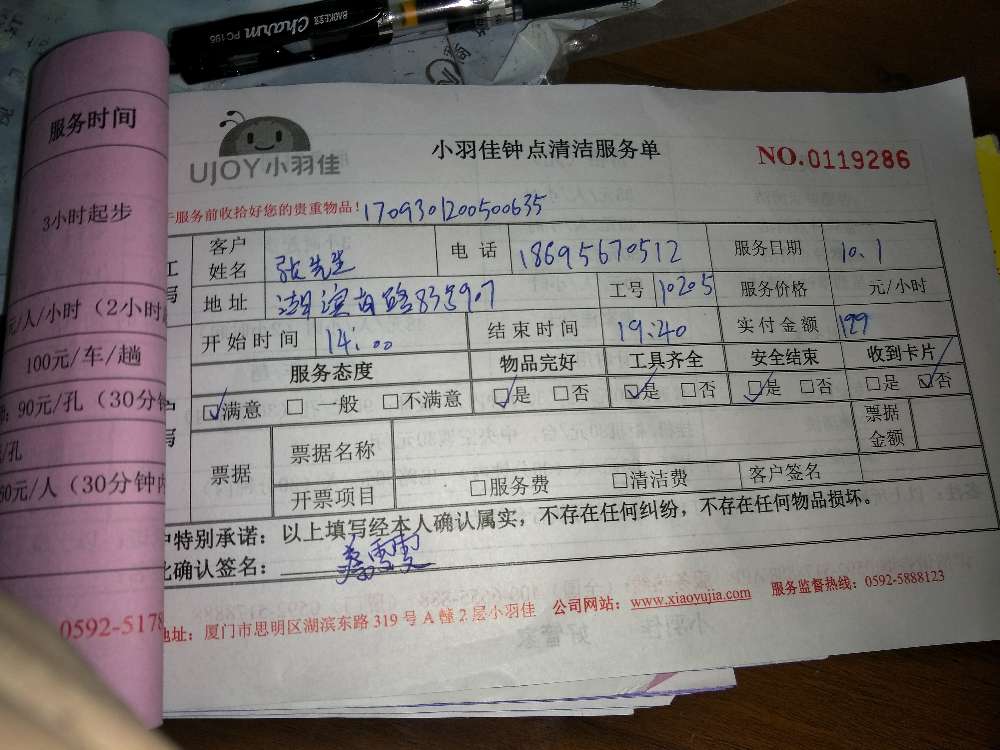 BAOKE宝克 Charm PC196
服务时间
3小时起步
元/人/小时（2小时
100元/车/趟
90元/孔（30分钟
/孔
60元/人（30分钟内
0592-5178
UJOY小羽佳
小羽佳钟点清洁服务单
NO.0119286
于服务前收拾好您的贵重物品！1709301200500635
客户姓名 张先生 电话 18695670512 服务日期 10.1
地址 湖滨南路83号907 工号 10205 服务价格 元/小时
开始时间 14:00 结束时间 19:40 实付金额 199
服务态度 物品完好 工具齐全 安全结束 收到卡片
☑满意 □一般 □不满意 ☑是 □否 ☑是 □否 ☑是 □否 □是 ☑否
票据 票据名称 票据金额
开票项目 □服务费 □清洁费 客户签名
户特别承诺：以上填写经本人确认属实，不存在任何纠纷，不存在任何物品损坏。
比确认签名：
地址：厦门市思明区湖滨东路319号A幢2层小羽佳 公司网站：www.xiaoyujia.com 服务监督热线：0592-5888123